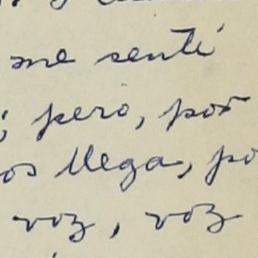 me sentí
; pero, por
os llega, po
voz, voz